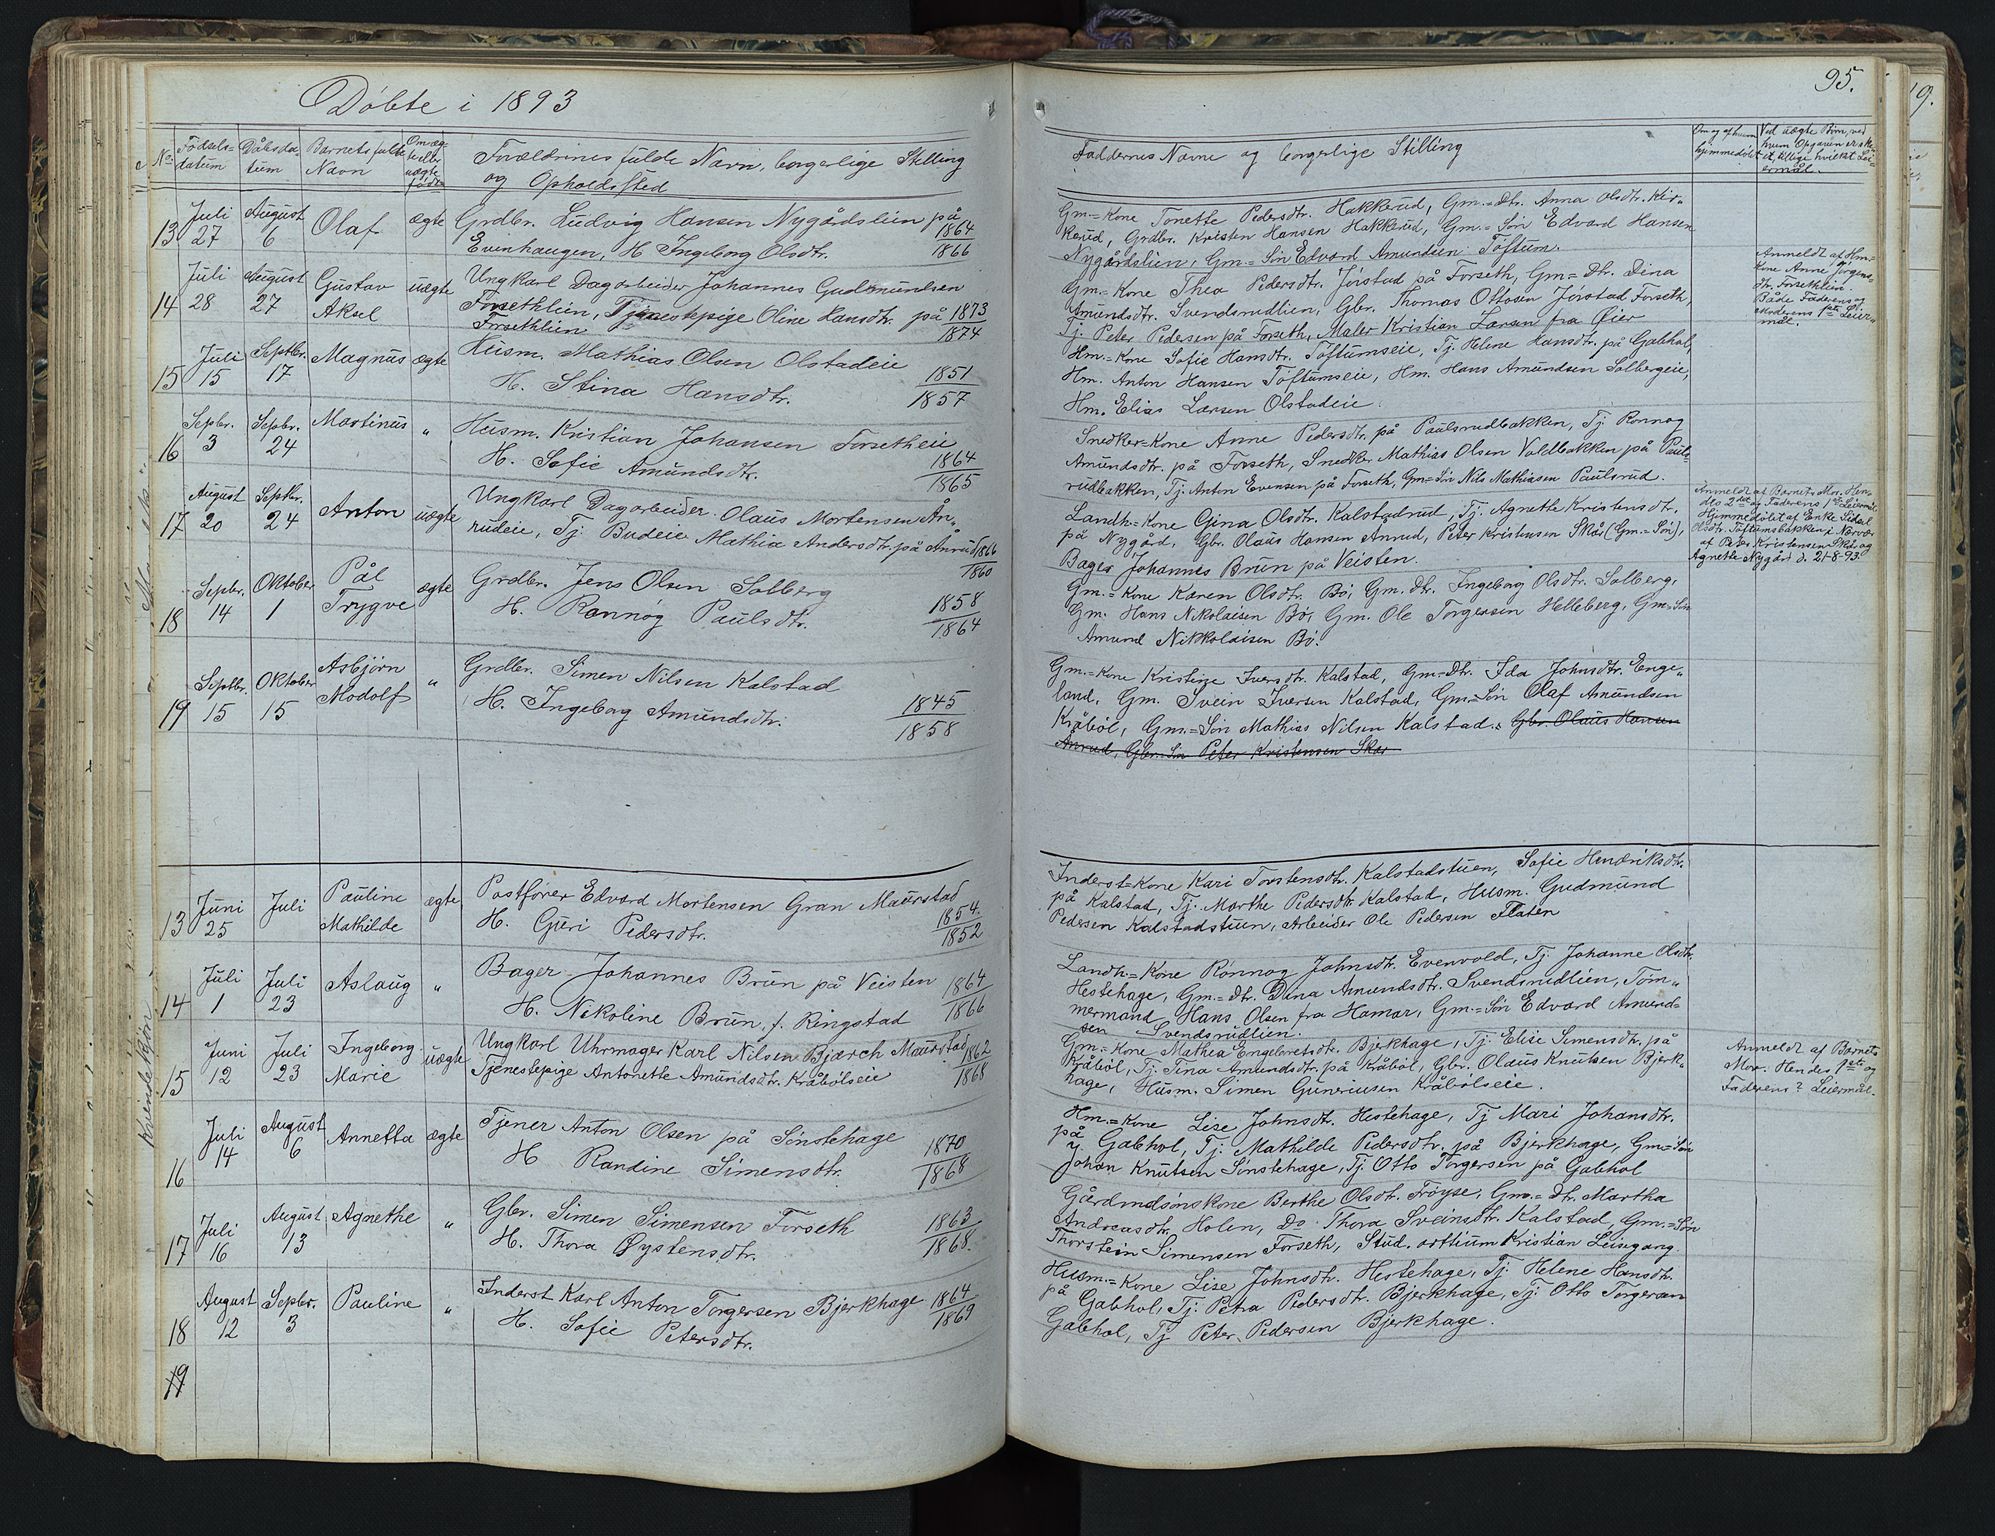 Döbte i 1893
No. Fødsels-datum Dåbsda-tum Barnets fulde Navn Om æg-te eller uægte født Forældrenes fulde Navn, borgerlige Stilling og Opholdssted
13 Juli 27 August 6 Olaf ægte Grdbr. Ludvig Hansen Nygårdslien på 1864
Evenhaugen, H. Ingeborg Olsdtr. 1866
14 Juli 28 August 27 Gustav Aksel uægte Ungkarl Dagarbeider Johannes Gudmundsen
Forsethlien, Tjenestepige Oline Hansdtr. på 1873
Forsethlien 1874
15 Juli 15 Septbr. 17 Magnus ægte Husm. Mathias Olsen Olstadeie 1851
H. Stina Hansdtr. 1857
16 Sepbr. 3 Sepbr. 24 Martinus „ Husm. Kristian Johansen Forsetheie 1864
H. Sofie Amundsdtr. 1865
17 August 20 Septbr. 24 Anton uægte Ungkarl Dagarbeider Olaus Mortensen Ån-
rudeie, Tj. Budeie Mathia Andersdtr. på Ånrud 1866
1860
18 Sepbr. 14 Oktober 1 Pål Trygve ægte Grdbr. Jens Olsen Solberg 1858
H. Rønnøg Paulsdtr. 1864
19 Septbr. 15 Oktober 15 Asbjørn Modolf „ Grdbr. Simen Nilsen Kalstad 1845
H. Ingeborg Amundsdtr. 1858
Kvindekjön
13 Juni 25 Juli Pauline Mathilde ægte Postfører Edvard Mortensen Gran Maurstad 1854
H. Guri Pedersdtr. 1852
14 Juli 1 Juli 23 Aslaug „ Bager Johannes Brun på Veisten 1864
H. Nikoline Brun, f. Ringstad 1866
15 Juni 12 Juli 23 Ingeborg Marie uægte Ungkarl Uhrmager Karl Nilsen Bjørch Maurstad 1862
Tjenestepige Antonette Amundsdtr. Kråbølseie 1868
16 Juli 14 August 6 Annetta ægte Tjener Anton Olsen på Sønstehage 1870
H. Randine Simensdtr. 1868
17 Juli 16 August 13 Agnethe „ Gbr. Simen Simensen Forseth 1863
H. Thora Øystensdtr. 1868
18 August 12 Sepbr. 3 Pauline „ Inderst Karl Anton Torgersen Bjerkhage 1864
H. Sofie Petersdtr. 1869
19
95.
Faddernes Navne og borgerlige Stilling
Om og af hvem hjemmedøbt
Ved uægte Börn, ved hvem Opgaven er skeet, tillige hvilket Leiermål.
Gm.=Kone Tonette Pedersdtr. Hakkerud, Gm.=Dtr. Anna Olsdtr. Kir-
kerud, Grdbr. Kristen Hansen Hakkerud, Gm.=Søn Edvard Hansen
Nygårdslien, Gm.=Søn Edvard Amundsen Toftum.
Gm.=Kone Thea Pedersdtr. Jørstad på Forseth, Gm.=Dtr. Dina
Amundsdtr. Svendsrudlien, Gbr. Thomas Ottosen Jørstad Forseth,
Tj. Peter Pedersen på Forseth, Maler Kristian Larsen fra Øier
Anmeldt af Hm-
Kone Anne Jörgens-
dtr. Forsethlien.
Både Faderens og
Moderens 1ste Leier-
mål.
Hm.=Kone Sofie Hansdtr. Toftumseie, Tj. Helene Hansdtr. på Gabhol,
Hm. Anton Hansen Toftumseie, Hm. Hans Amundsen Solbergeie,
Hm. Elias Larsen Olstadeie.
Snedker-Kone Anne Pedersdtr. på Paulsrudbakken, Tj. Rønnog
Amundsdtr. på Forseth, Snedker Mathias Olsen Voldbakken på Pauls-
rudbakken, Tj. Anton Evensen på Forseth, Gm=Søn Nils Mathiasen Paulsrud.
Landh.=Kone Gina Olsdtr. Kalstadrud, Tj. Agnethe Kristensdtr.
på Nygård, Gbr. Olaus Hansen Anrud, Peter Kristensen Skår (Gm.=Søn),
Bager Johannes Brun på Veisten.
Anmeldt af Barnets Mor. Hen-
des 2det og Faderens 1ste Leiermål.
Hjemmedøbt af Enke Sidsel
Olsdtr. Toftumsbakken i Nærvær
af Peter Kristensen Skår og
Agnethe Nygård d. 21-8-93.
Gm.=Kone Karen Olsdtr. Bø, Gm. Dtr. Ingeborg Olsdtr. Solberg,
Gm. Hans Nikolaisen Bø, Gm. Ole Torgersen Helleberg, Gm=Søn
Amund Nikkolaisen Bø.
Gm.=Kone Kristine Iversdtr. Kalstad, Gm=Dtr. Ida Johnsdtr. Enge-
land, Gm. Svein Iversen Kalstad, Gm=Søn Olaf Amundsen
Kråbøl, Gm.=Søn Mathias Nilsen Kalstad. Gbr. Olaus Hansen
Anrud, Gbr.Søn Peter Kristensen Skår
Inderst=Kone Kari Torstensdtr. Kalstadstuen, Sofie Hendriksdtr.
på Kalstad, Tj. Marthe Pedersdtr. Kalstad, Husm. Gudmund
Pedersen Kalstadstuen, Arbeider Ole Pedersen Flaten
Landh.=Kone Rønnog Johnsdtr. Evenvold, Tj. Johanne Olsdtr.
Hestehage, Gm.=Dtr. Dina Amundsdtr. Svendsrudlien, Töm-
mermand Hans Olsen fra Hamar, Gm.=Søn Edvard Amund-
sen Svendsrudlien.
Gm.=Kone Mathea Engebretsdtr. Bjerkhage, Tj. Elise Simensdtr. på
Kråbøl, Tj. Sina Amundsdtr. på Kråbøl, Gbr. Olaus Knutsen Bjerk-
hage, Husm. Simen Gunriusen Kråbølseie.
Anmeldt af Barnets
Mor. Hendes 1ste og
Faderens ? Leiermål.
Hm.=Kone Lise Johnsdtr. Hestehage, Tj. Mari Johansdtr.
på Gabhol, Tj. Mathilde Pedersdtr. på Bjerkhage, Gm=Søn
Johan Knutsen Sønstehage, Tj. Otto Torgersen på Gabhol
Gårdmdsønskone Berthe Olsdtr. Frøyse, Gm.=Dtr. Martha
Andreasdtr. Holen, Do Thora Sveinsdtr. Kalstad, Gm.=Søn
Thorstein Simensen Forseth, Stud. artium Kristian Leisegang.
Husm.=Kone Lise Johnsdtr. Hestehage, Tj. Helene Hansdtr.
på Gabhol, Tj. Petra Pedersdtr. Bjerkhage, Tj. Otto Torgersen
Gabhol, Tj. Peter Pedersen Bjerkhage.